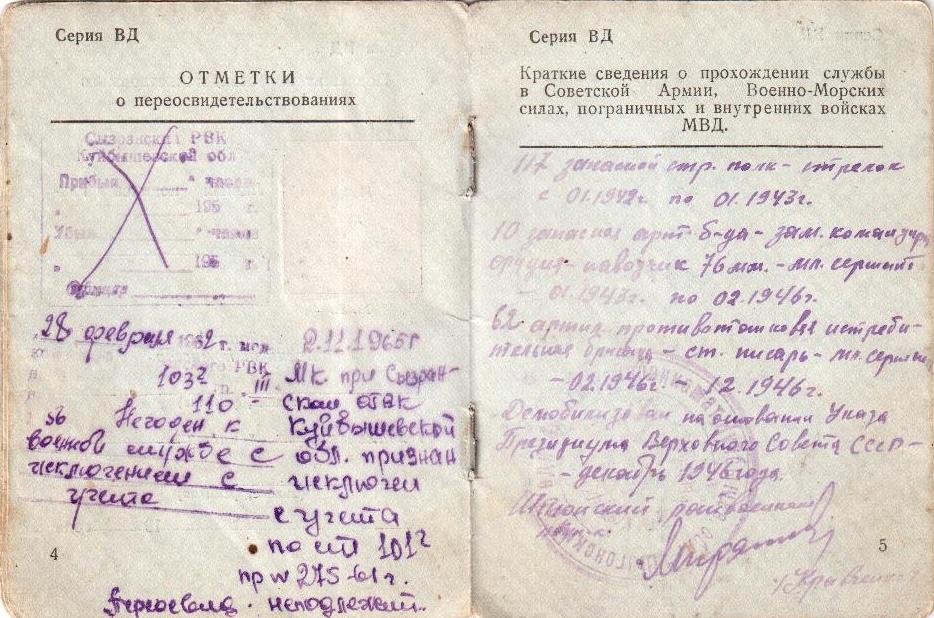 Серия ВД
ОТМЕТКИ
о переосвидетельствованиях
Сызранский РВК
Куйбышевской обл
Прибыл " часов
" 195 г.
Убыл " часов
" 195 г.
28 февраля 1962 г. мед.
РВК
103²
гр. III
110 -
Негоден к
военной службе с
исключением с
учета
2.11.1965г
МК при Сызран-
ском ОГВК
Куйбышевской
обл. признан
исключен
с учета
по ст 101²
пр № 275-61 г.
Переосвид. неподлежит.
4
Серия ВД
Краткие сведения о прохождении службы
в Советской Армии, Военно-Морских
силах, пограничных и внутренних войсках
МВД.
117 запасной стр. полк - стрелок
с 01.1942г. по 01.1943г.
10 запасная арт б-да - зам. командира
орудия - наводчик 76 мм. - мл. сержант
01.1943г. по 02.1946г.
62 артил. противотанковая истреби-
тельная бригада - ст. писарь - мл. сержант
- 02.1946г. - 12.1946г.
Демобилизован на основании Указа
Президиума Верховного Совета СССР -
- декабрь 1946 года.
5